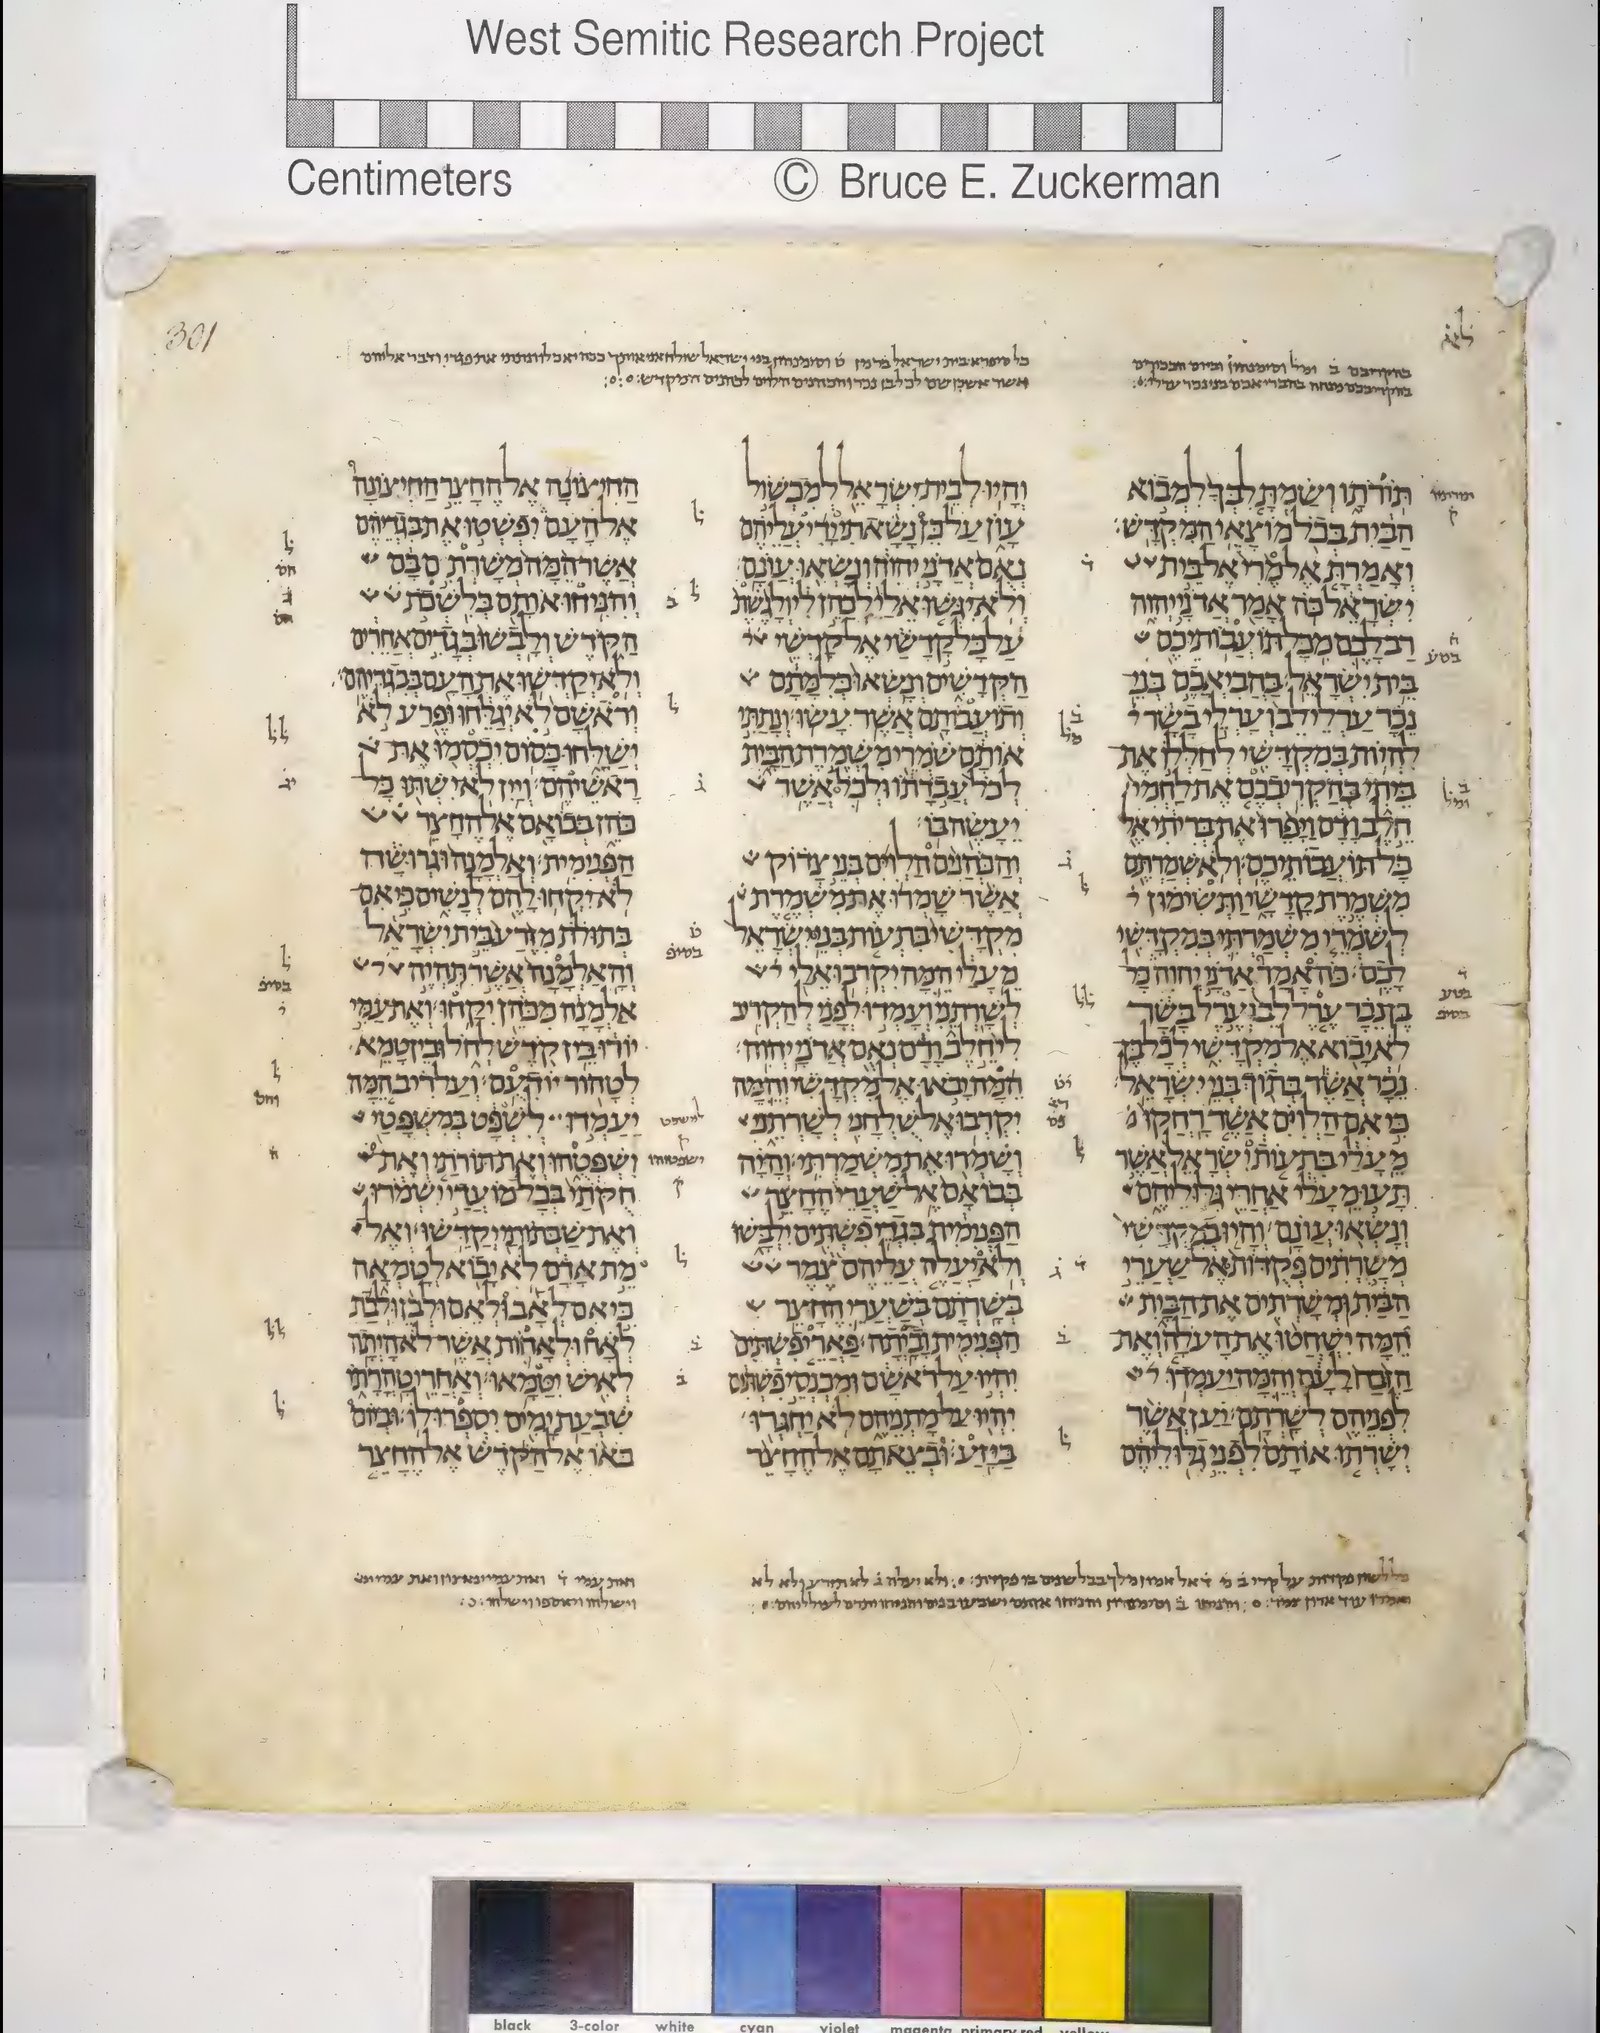 West Semitic Research Project
Centimeters © Bruce E. Zuckerman
301
תּוֹרֹתָו וְשַׂמְתָּ לִבְּךָ לִמְבוֹא
הַבַּיִת בְּכֹל מוֹצָאֵי הַמִּקְדָּשׁ׃
וְאָמַרְתָּ אֶל־מֶרִי אֶל־בֵּית
יִשְׂרָאֵל כֹּה אָמַר אֲדֹנָי יְהוִה
רַב־לָכֶם מִכָּל־תּוֹעֲבוֹתֵיכֶם
בֵּית יִשְׂרָאֵל׃ בַּהֲבִיאֲכֶם בְּנֵי
נֵכָר עַרְלֵי־לֵב וְעַרְלֵי בָשָׂר
לִהְיוֹת בְּמִקְדָּשִׁי לְחַלְּלוֹ אֶת־
בֵּיתִי בְּהַקְרִיבְכֶם אֶת־לַחְמִי
חֵלֶב וָדָם וַיָּפֵרוּ אֶת־בְּרִיתִי אֶל
כָּל־תּוֹעֲבוֹתֵיכֶם׃ וְלֹא שְׁמַרְתֶּם
מִשְׁמֶרֶת קָדָשָׁי וַתְּשִׂימוּן
לְשֹׁמְרֵי מִשְׁמַרְתִּי בְּמִקְדָּשִׁי
לָכֶם׃ כֹּה־אָמַר אֲדֹנָי יְהוִה כָּל־
בֶּן־נֵכָר עֶרֶל לֵב וְעֶרֶל בָּשָׂר
לֹא יָבוֹא אֶל־מִקְדָּשִׁי לְכָל־בֶּן־
נֵכָר אֲשֶׁר בְּתוֹךְ בְּנֵי יִשְׂרָאֵל׃
כִּי אִם־הַלְוִיִּם אֲשֶׁר רָחֲקוּ
מֵעָלַי בִּתְעוֹת יִשְׂרָאֵל אֲשֶׁר
תָּעוּ מֵעָלַי אַחֲרֵי גִּלּוּלֵיהֶם
וְנָשְׂאוּ עֲוֺנָם׃ וְהָיוּ בְמִקְדָּשִׁי
מְשָׁרְתִים פְּקֻדּוֹת אֶל־שַׁעֲרֵי
הַבַּיִת וּמְשָׁרְתִים אֶת־הַבָּיִת
הֵמָּה יִשְׁחֲטוּ אֶת־הָעֹלָה וְאֶת־
הַזֶּבַח לָעָם וְהֵמָּה יַעַמְדוּ
לִפְנֵיהֶם לְשָׁרְתָם׃ יַעַן אֲשֶׁר
יְשָׁרְתוּ אוֹתָם לִפְנֵי גִלּוּלֵיהֶם
וְהָיוּ לְבֵית־יִשְׂרָאֵל לְמִכְשׁוֹל
עָוֺן עַל־כֵּן נָשָׂאתִי יָדִי עֲלֵיהֶם
נְאֻם אֲדֹנָי יְהוִה וְנָשְׂאוּ עֲוֺנָם׃
וְלֹא־יִגְּשׁוּ אֵלַי לְכַהֵן לִי וְלָגֶשֶׁת
עַל־כָּל־קָדָשַׁי אֶל־קָדְשֵׁי
הַקְּדָשִׁים וְנָשְׂאוּ כְּלִמָּתָם
וְתוֹעֲבוֹתָם אֲשֶׁר עָשׂוּ׃ וְנָתַתִּי
אוֹתָם שֹׁמְרֵי מִשְׁמֶרֶת הַבָּיִת
לְכֹל עֲבֹדָתוֹ וּלְכֹל אֲשֶׁר
יֵעָשֶׂה בּוֹ׃
וְהַכֹּהֲנִים הַלְוִיִּם בְּנֵי צָדוֹק
אֲשֶׁר שָׁמְרוּ אֶת־מִשְׁמֶרֶת
מִקְדָּשִׁי בִּתְעוֹת בְּנֵי־יִשְׂרָאֵל
מֵעָלַי הֵמָּה יִקְרְבוּ אֵלַי
לְשָׁרְתֵנִי וְעָמְדוּ לְפָנַי לְהַקְרִיב
לִי חֵלֶב וָדָם נְאֻם אֲדֹנָי יְהוִה׃
הֵמָּה יָבֹאוּ אֶל־מִקְדָּשִׁי וְהֵמָּה
יִקְרְבוּ אֶל־שֻׁלְחָנִי לְשָׁרְתֵנִי
וְשָׁמְרוּ אֶת־מִשְׁמַרְתִּי׃ וְהָיָה
בְּבוֹאָם אֶל־שַׁעֲרֵי הֶחָצֵר
הַפְּנִימִית בִּגְדֵי פִשְׁתִּים יִלְבָּשׁוּ
וְלֹא־יַעֲלֶה עֲלֵיהֶם צֶמֶר
בְּשָׁרְתָם בְּשַׁעֲרֵי הֶחָצֵר
הַפְּנִימִית וָבָיְתָה׃ פַּאֲרֵי פִשְׁתִּים
יִהְיוּ עַל־רֹאשָׁם וּמִכְנְסֵי פִשְׁתִּים
יִהְיוּ עַל־מָתְנֵיהֶם לֹא יַחְגְּרוּ
בַּיָּזַע׃ וּבְצֵאתָם אֶל־הֶחָצֵר
הַחִיצוֹנָה אֶל־הֶחָצֵר הַחִיצוֹנָה
אֶל־הָעָם יִפְשְׁטוּ אֶת־בִּגְדֵיהֶם
אֲשֶׁר־הֵמָּה מְשָׁרְתִם בָּם
וְהִנִּיחוּ אוֹתָם בְּלִשְׁכֹת
הַקֹּדֶשׁ וְלָבְשׁוּ בְּגָדִים אֲחֵרִים
וְלֹא־יְקַדְּשׁוּ אֶת־הָעָם בְּבִגְדֵיהֶם׃
וְרֹאשָׁם לֹא יְגַלֵּחוּ וּפֶרַע לֹא
יְשַׁלֵּחוּ כָּסוֹם יִכְסְמוּ אֶת־
רָאשֵׁיהֶם׃ וְיַיִן לֹא־יִשְׁתּוּ כָּל־
כֹּהֵן בְּבוֹאָם אֶל־הֶחָצֵר
הַפְּנִימִית׃ וְאַלְמָנָה וּגְרוּשָׁה
לֹא־יִקְחוּ לָהֶם לְנָשִׁים כִּי אִם־
בְּתוּלֹת מִזֶּרַע בֵּית יִשְׂרָאֵל
וְהָאַלְמָנָה אֲשֶׁר תִּהְיֶה
אַלְמָנָה מִכֹּהֵן יִקָּחוּ׃ וְאֶת־עַמִּי
יוֹרוּ בֵּין קֹדֶשׁ לְחֹל וּבֵין־טָמֵא
לְטָהוֹר יוֹדִעֻם׃ וְעַל־רִיב הֵמָּה
יַעַמְדוּ לִשְׁפֹּט בְּמִשְׁפָּטַי
וְשִׁפְטֻהוּ וְאֶת־תּוֹרֹתַי וְאֶת־
חֻקֹּתַי בְּכָל־מוֹעֲדַי יִשְׁמֹרוּ
וְאֶת־שַׁבְּתוֹתַי יְקַדֵּשׁוּ׃ וְאֶל־
מֵת אָדָם לֹא יָבוֹא לְטָמְאָה
כִּי אִם־לְאָב וּלְאֵם וּלְבֵן וּלְבַת
לְאָח וּלְאָחוֹת אֲשֶׁר־לֹא־הָיְתָה
לְאִישׁ יִטַּמָּאוּ׃ וְאַחֲרֵי טָהֳרָתוֹ
שִׁבְעַת יָמִים יִסְפְּרוּ־לוֹ׃ וּבְיוֹם
בֹּאוֹ אֶל־הַקֹּדֶשׁ אֶל־הֶחָצֵר
black 3-color white cyan violet magenta primary red yellow